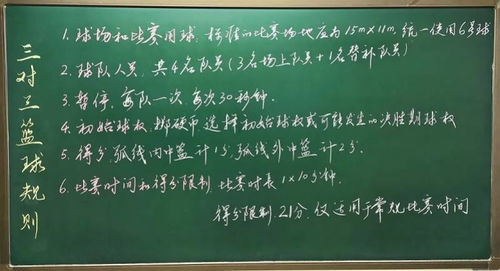 三对三篮球规则
1. 球场和比赛用球: 标准的比赛场地应为15m×11m, 统一使用6号球
2. 球队人员, 共4名队员(3名场上队员+1名替补队员)
3. 暂停, 每队一次, 每次30秒钟.
4. 初始球权, 掷硬币选择初始球权或可能发生的决胜期球权
5. 得分, 弧线内中篮计1分, 弧线外中篮计2分.
6. 比赛时间和得分限制, 比赛时长1×10分钟.
得分限制: 21分, 仅适用于常规比赛时间